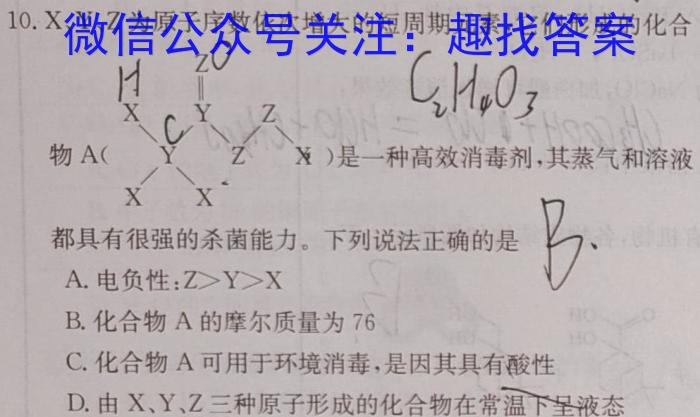 10. X、Y、Z为原子序数依次增大的短周期元素,它们形成的化合
微信公众号关注：趣找答案
Z O
H
‖
C₂H₄O₃
X Y Z
C
物 A( Y Z X )是一种高效消毒剂,其蒸气和溶液
X X
都具有很强的杀菌能力。下列说法正确的是 B.
A. 电负性:Z>Y>X
B. 化合物 A 的摩尔质量为 76
C. 化合物 A 可用于环境消毒,是因其具有酸性
D. 由 X、Y、Z 三种原子形成的化合物在常温下呈液态